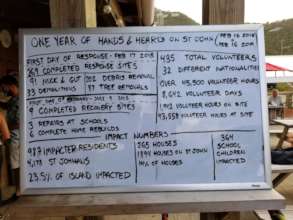 ONE YEAR OF HANDS & HEARTS ON ST JOHN
FEB 16 2018
FEB 16 2019
FIRST DAY OF RESPONSE - FEB 17 2018
169 COMPLETED RESPONSE SITES
91 MUCK & GUT
DEBRIS REMOVAL
33 DEMOLITIONS
37 TREE REMOVALS
FIRST DAY OF
9 COMPLETED RECOVERY SITES
REPAIRS AT SCHOOLS
6 COMPLETE HOME REBUILDS
435 TOTAL VOLUNTEERS
32 DIFFERENT NATIONALITIES
OVER 45,500 VOLUNTEER HOURS
8,642 VOLUNTEER DAYS
VOLUNTEER HOURS ON SITE
VOLUNTEER HOURS
IMPACT NUMBERS
987 IMPACTED RESIDENTS
4,173 ST JOHNIANS
23.5% OF ISLAND IMPACTED
265 HOUSES
1894 HOUSES ON ST JOHN
14% OF HOUSES
364
SCHOOL
CHILDREN
IMPACTED